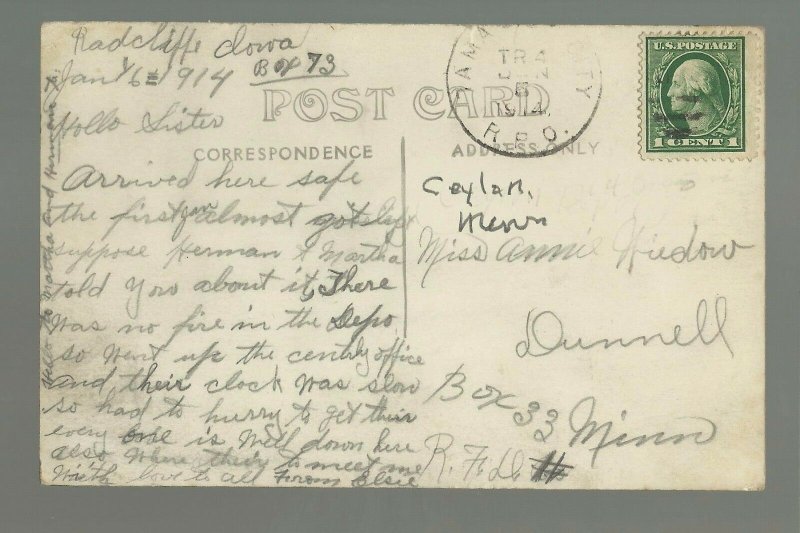 Radcliffe Iowa
Jan 6 = 1914 Box 73
POST CARD
CORRESPONDENCE
ADDRESS ONLY
Hollo Sister
Arrived here safe
the first Jan almost got left
suppose Herman & Martha
told you about it, There
was no fire in the Depo
so went up the centry office
and their clock was slow
so had to hurry to get their
every one is well down here
also where they to meet me
With love to all From Elsie
Hello to Martha and Herman
TR A
JAN
6
1914
R.P.O.
U.S. POSTAGE
1 CENT 1
Ceylan,
Minn
Miss Annie Wiedow
Dunnell
Box 33 Minn
R. F. D.